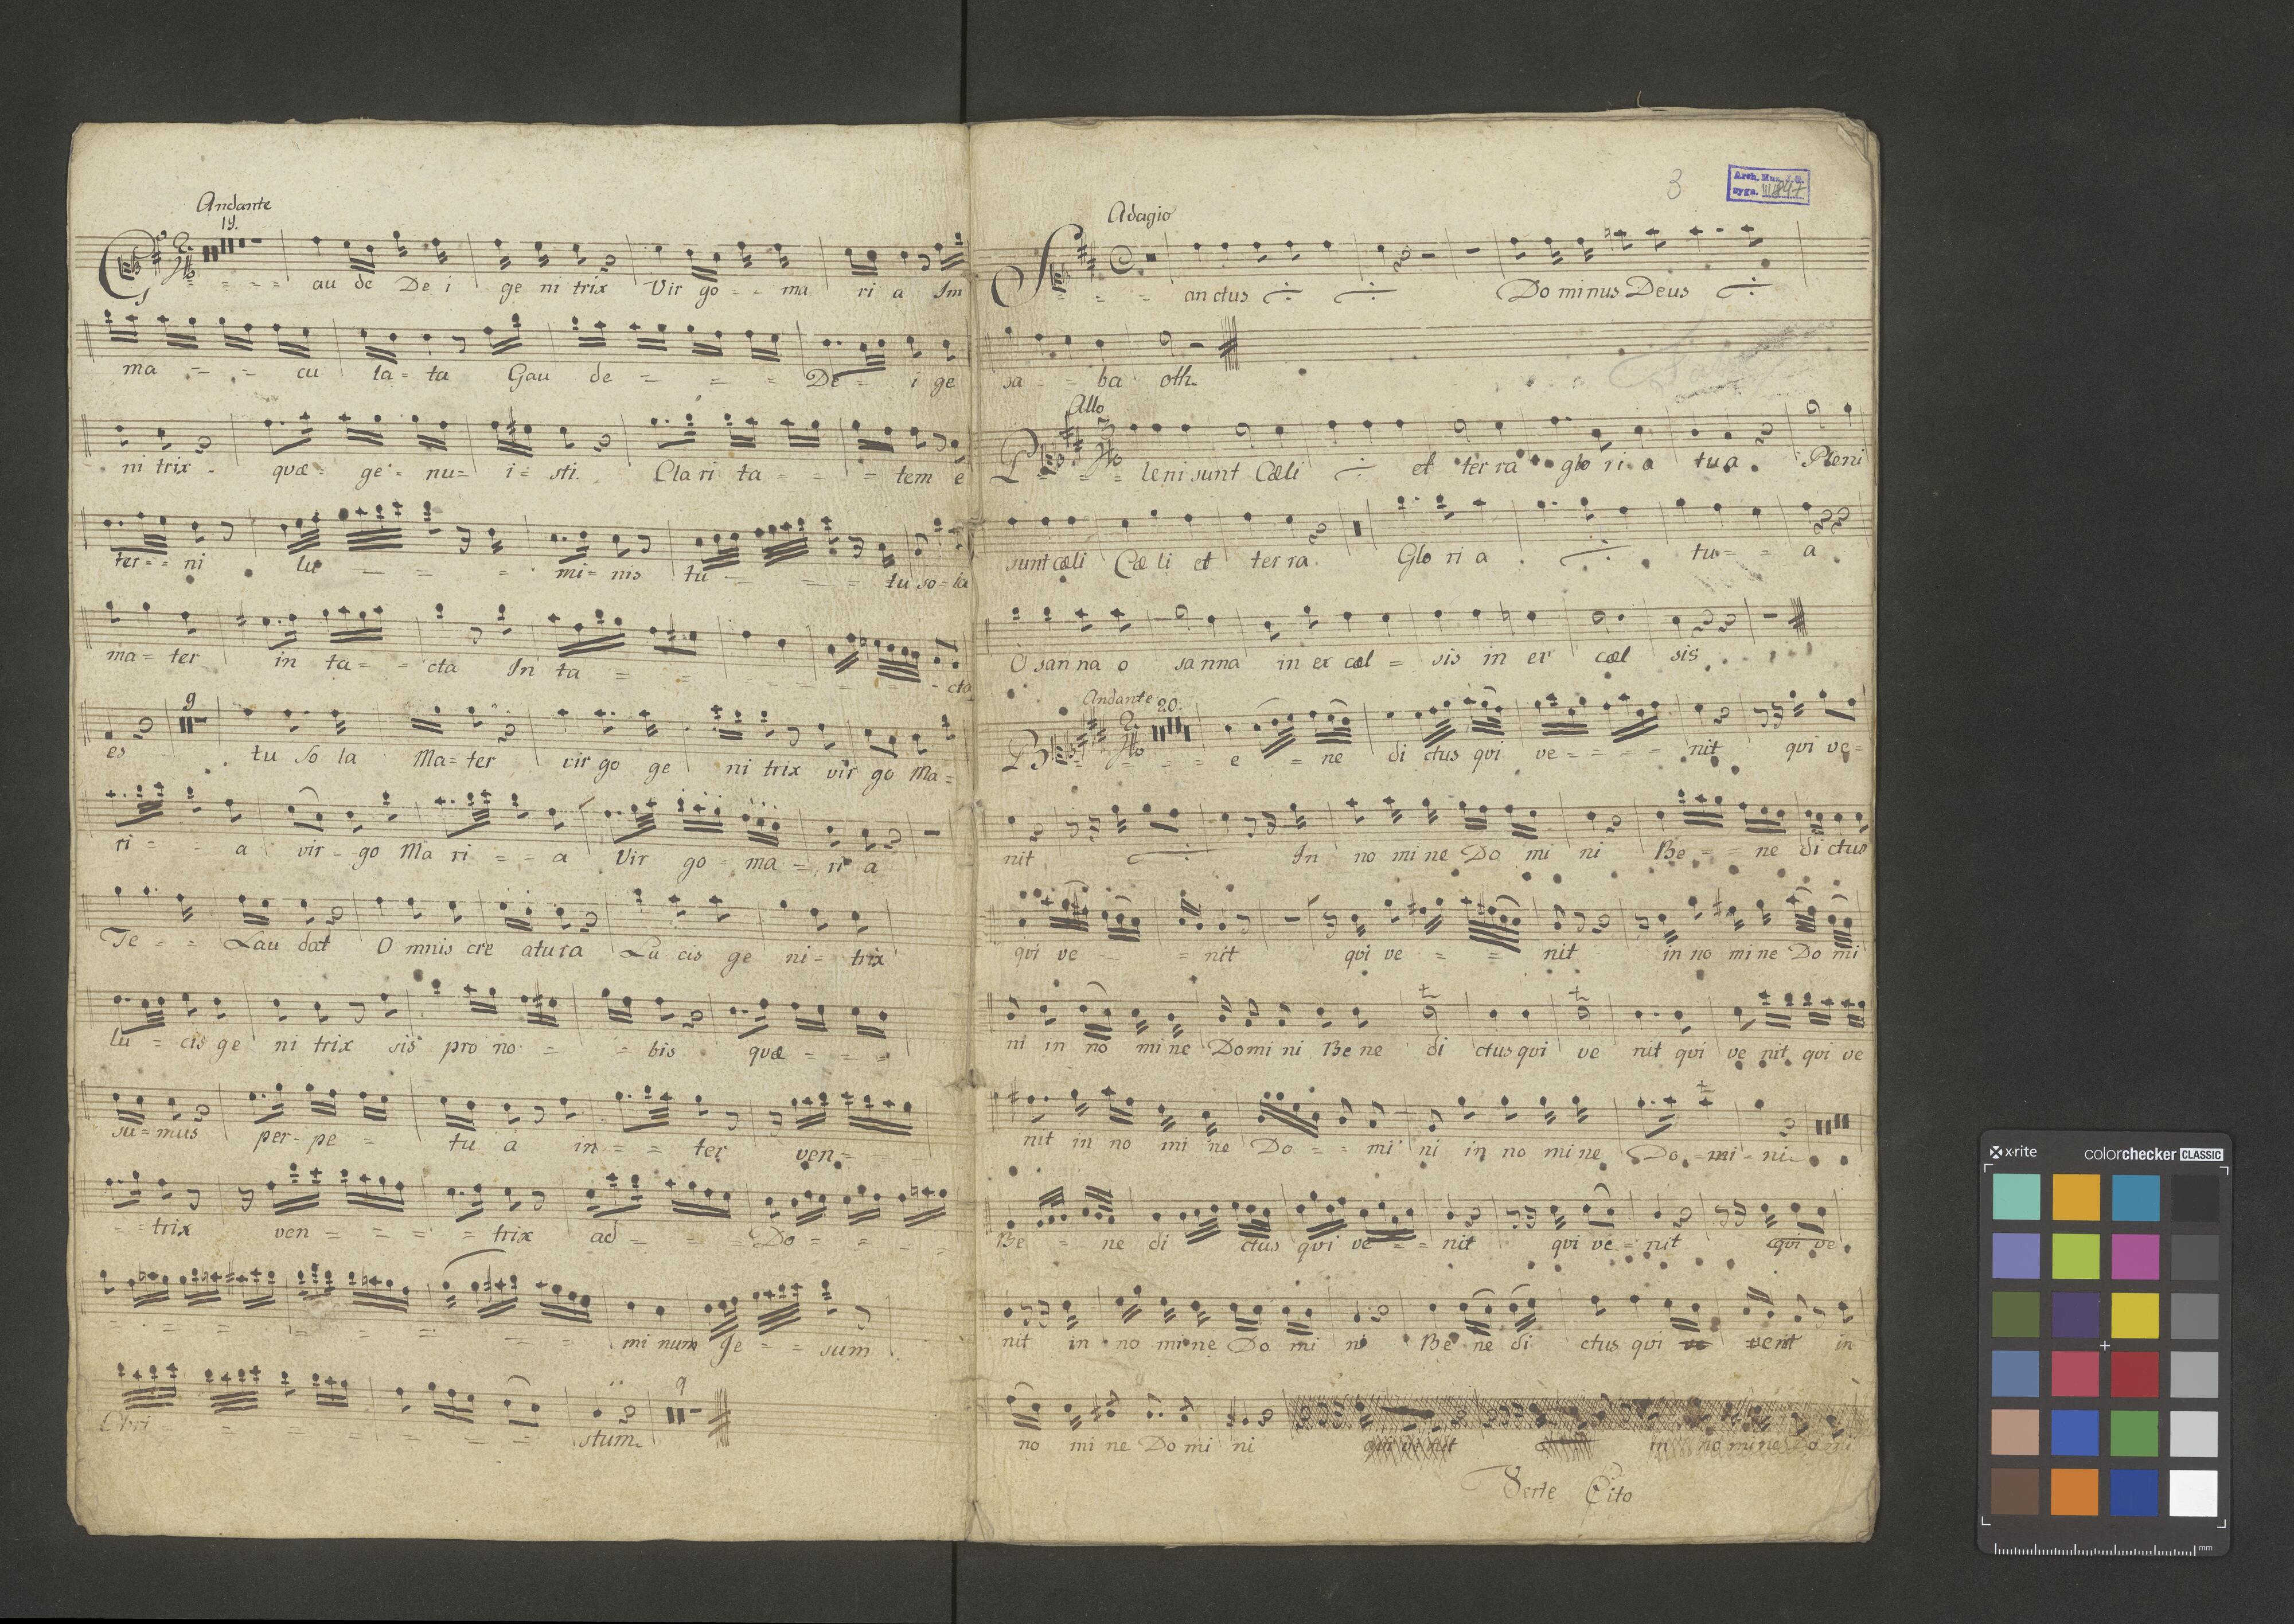 Andante
19.
G au de De i ge ni trix Vir go ma ri a Im
ma = = cu la = ta Gau de = = = De = i ge
ni trix quæ = ge = nu = i = sti. Cla ri ta = = = tem e
ter = ni lu = = = mi = nis tu = = = tu so = la
ma = ter in ta = = cta In ta = = = = cta
9
es tu so la Ma = ter vir go ge ni trix vir go Ma =
ri = = a vir = go Ma ri = = a Vir go = ma = ri a
Te = = Lau dat O mnis cre atura Lu cis ge ni = trix
lu = cis ge ni trix sis pro no = = bis quæ = = =
su = mus per = pe = tu a in = = ter ven =
= = trix ven = = = = trix ad = = = Do = = =
= = = = = = = = mi num Je = = sum
9
Chri = = = = = = stum.
3
Arch. Mus. J. G.
sygn. III 847
Adagio
S = = = anctus ÷ ÷ Dominus Deus ÷
sa = = ba oth.
Allo
P = = = leni sunt Cæli ÷ et terra glo ri a tua. Pleni
sunt cæli Cæ li et ter ra. Glo ri a ÷ tu = = a
O san na o sanna in ex cæl = sis in ex cæl sis
Andante 20.
B = = = e = ne di ctus qui ve = = = = nit qui ve =
nit ÷ In no mi ne Do mi ni Be = = ne di ctus
qui ve = nit qui ve = = nit in no mi ne Do mi
ni in no mi ne Domi ni Be ne di ctus qui ve nit qui ve nit qui ve
nit in no mi ne Do = = mi ni in no mi ne Do = mi = ni.
Be = ne di ctus qui ve = = nit qui ve = nit qui ve
nit in no mi ne Do mi ni Be ne di ctus qui ve venit in
no mi ne Do mi ni qui ve nit in no mi ne Do mi
Verte Cito
x·rite colorchecker CLASSIC
mm